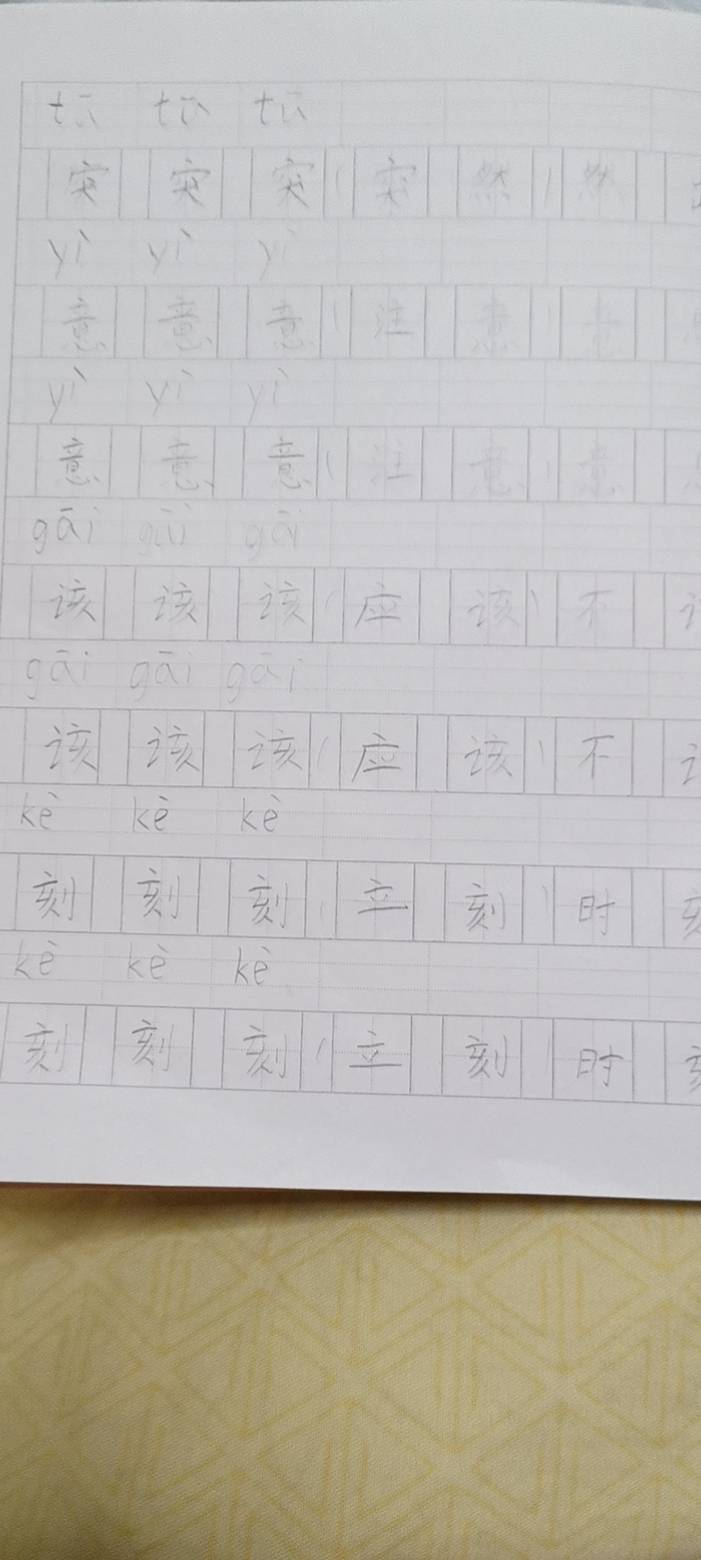 tū tū tū
突 突 突 ( 突 然 ) 然
yì yì yì
意 意 意 ( 注 意 ) 意
yì yì yì
意 意 意 ( 注 意 ) 意
gāi gāi gāi
该 该 该 ( 应 该 ) 不
gāi gāi gāi
该 该 该 ( 应 该 ) 不
kè kè kè
刻 刻 刻 ( 立 刻 ) 时
kè kè kè
刻 刻 刻 ( 立 刻 ) 时